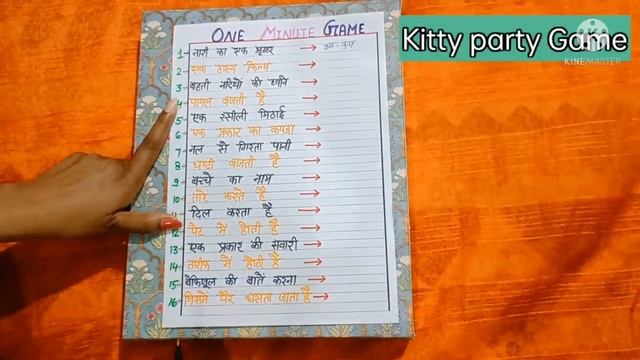 ONE MINUTE GAME
Kitty party Game
KINEMASTER
1- नारी का एक श्रृंगार → कुम-कुम
2- एक हास्य फिल्म →
3- बहती नदियों की ध्वनि →
4- पायल बजती है →
5- एक रसीली मिठाई →
6- एक प्रकार का कपड़ा →
7- नल से गिरता पानी →
8- घण्टी बजती है →
9- बच्चे का नाम →
10- तारे करते है →
11- दिल करता है →
12- पेट में होती है →
13- एक प्रकार की सवारी →
14- तारीख में होती है →
15- बेफिजूल की बातें करना →
16- जिसमें पैर धसता जाता है →